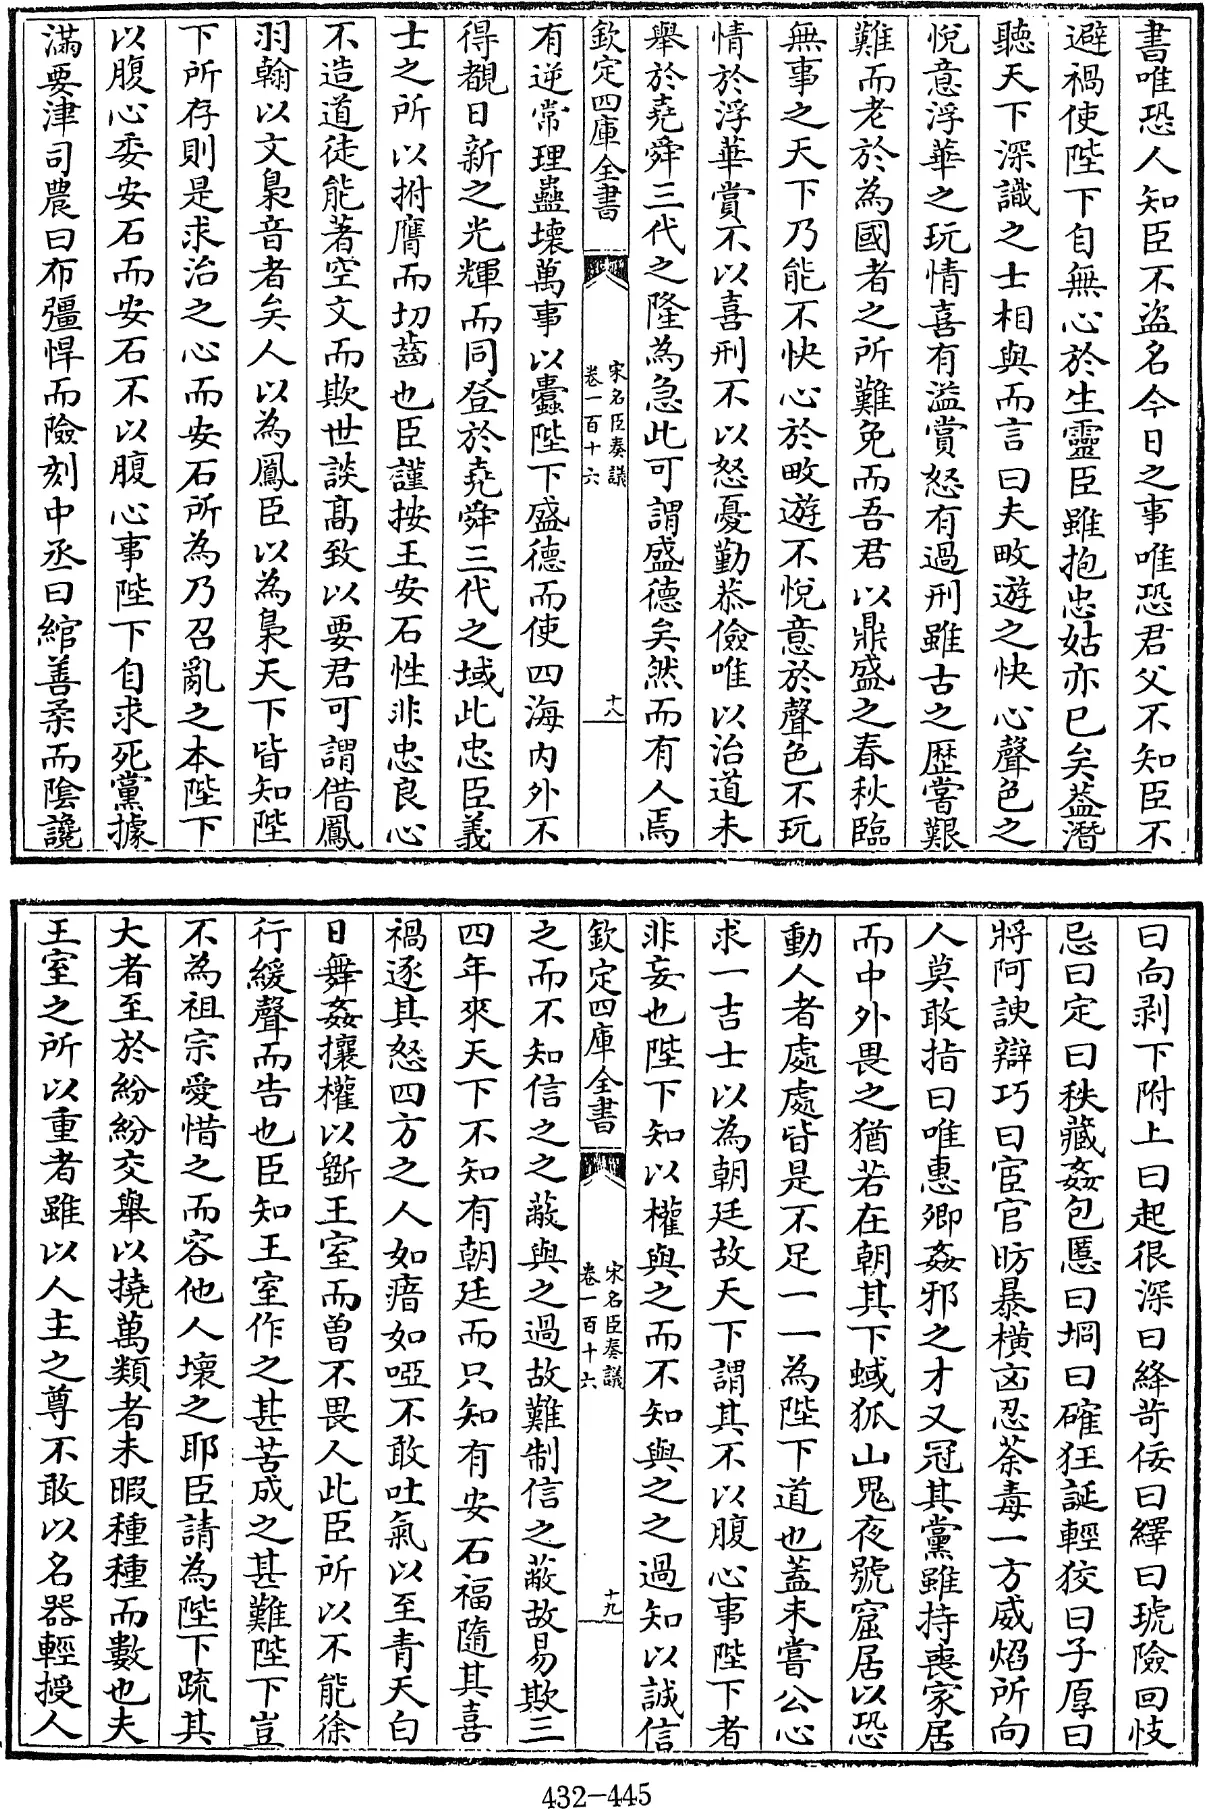 書唯恐人知臣不盗名今日之事唯恐君父不知臣不
避禍使陛下自無心於生靈臣雖抱忠姑亦已矣葢潛
聽天下深識之士相與而言曰夫畋遊之快心聲色之
悅意浮華之玩情喜有溢賞怒有過刑雖古之歷嘗艱
難而老於為國者之所難免而吾君以鼎盛之春秋臨
無事之天下乃能不快心於畋遊不悅意於聲色不玩
情於浮華賞不以喜刑不以怒憂勤恭儉唯以治道未
舉於堯舜三代之隆為急此可謂盛德矣然而有人焉
欽定四庫全書
宋名臣奏議
卷一百十六
十八
有逆常理蠱壞萬事以蠧陛下盛德而使四海内外不
得覩日新之光輝而同登於堯舜三代之域此忠臣義
士之所以拊膺而切齒也臣謹按王安石性非忠良心
不造道徒能著空文而欺世談髙致以要君可謂借鳳
羽翰以文梟音者矣人以為鳳臣以為梟天下皆知陛
下所存則是求治之心而安石所為乃召亂之本陛下
以腹心委安石而安石不以腹心事陛下自求死黨據
滿要津司農曰布彊悍而險刻中丞曰綰善柔而陰讒
曰向剥下附上曰起很深曰絳苛佞曰繹曰琥險回忮
忌曰定曰秩藏姦包慝曰坰曰確狂誕輕狡曰子厚曰
將阿諛辯巧曰宦官昉暴橫凶忍荼毒一方威熖所向
人莫敢指曰唯惠卿姦邪之才又冠其黨雖持喪家居
而中外畏之猶若在朝其下蜮狐山鬼夜號窟居以恐
動人者處處皆是不足一一為陛下道也蓋未嘗公心
求一吉士以為朝廷故天下謂其不以腹心事陛下者
非妄也陛下知以權與之而不知與之之過知以誠信
欽定四庫全書
宋名臣奏議
卷一百十六
十九
之而不知信之之蔽與之過故難制信之蔽故易欺三
四年來天下不知有朝廷而只知有安石福隨其喜
禍逐其怒四方之人如瘖如啞不敢吐氣以至青天白
日舞姦攘權以斵王室而曾不畏人此臣所以不能徐
行緩聲而告也臣知王室作之甚苦成之甚難陛下豈
不為祖宗愛惜之而容他人壞之耶臣請為陛下疏其
大者至於紛紛交舉以撓萬類者未暇種種而數也夫
王室之所以重者雖以人主之尊不敢以名器輕授人
432-445